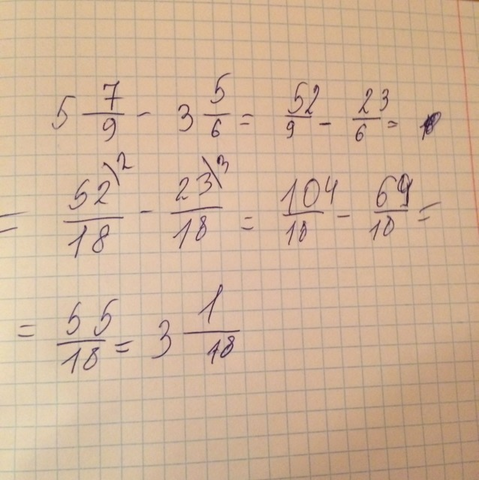 5 7/9 - 3 5/6 = 52/9 - 23/6 =
= 52\2/18 - 23\3/18 = 104/18 - 69/18 =
= 55/18 = 3 1/18